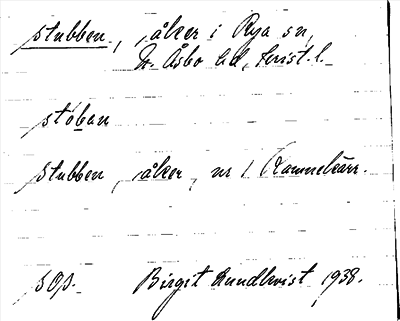 stubben, åker i Rya sn,
N. Åsbo hd, Krist. l.
stoban
stubben, åker, nr 1
sOp. Birgit Lundkvist 1938.